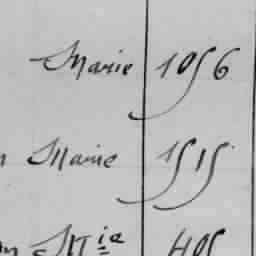 Marie 1056
n Marie 1515
n Mie 405